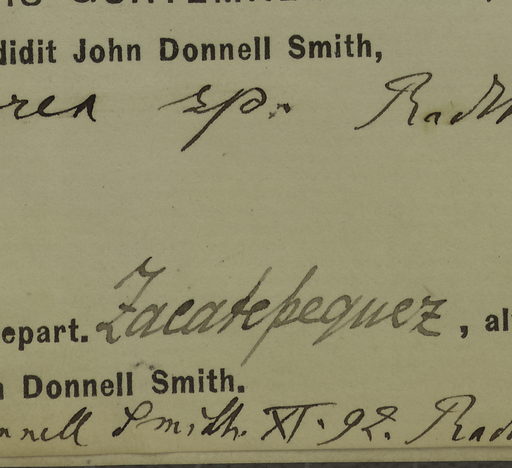 didit John Donnell Smith,
sp. Radl
epart. Zacatepequez, al
n Donnell Smith.
nnell Smith. XI. 92. Rad